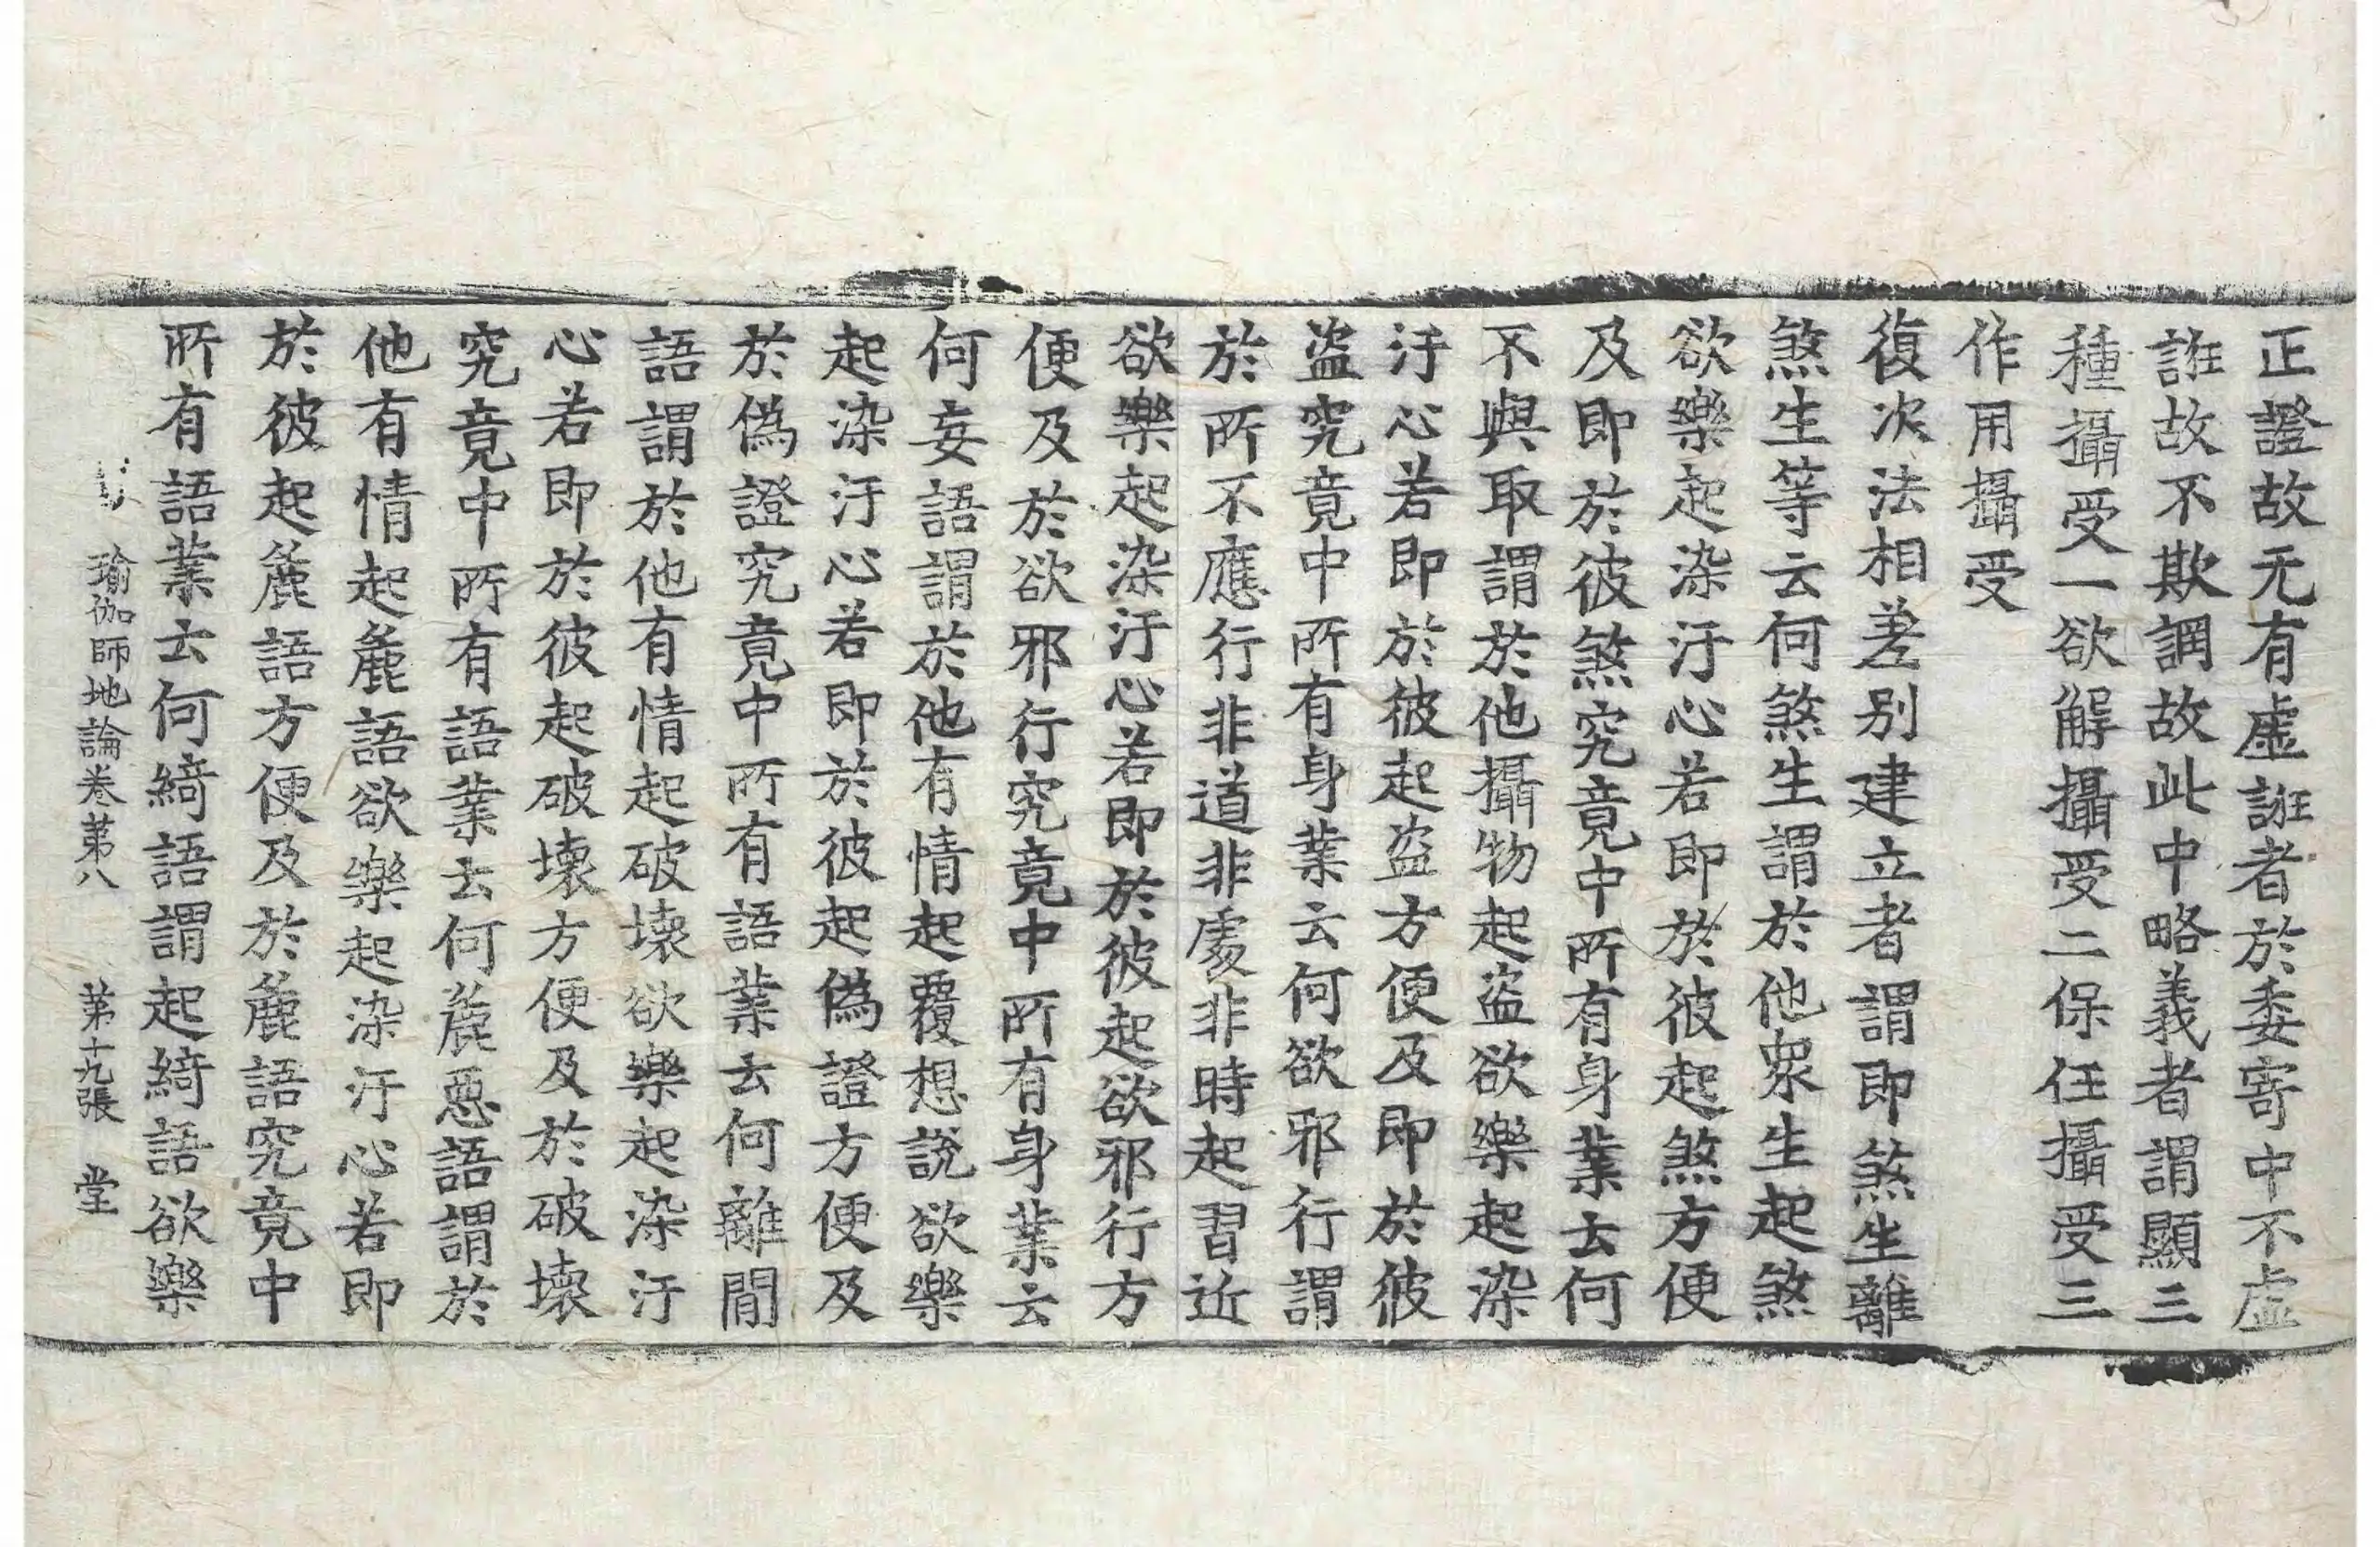 正證故无有虛誑者於委寄中不虛
誑故不欺調故此中略義者謂顯三
種攝受一欲解攝受二保任攝受三
作用攝受
復次法相差別建立者謂即煞生離
煞生等云何煞生謂於他衆生起煞
欲樂起染汙心若即於彼起煞方便
及即於彼煞究竟中所有身業云何
不與取謂於他攝物起盜欲樂起染
汙心若即於彼起盜方便及即於彼
盜究竟中所有身業云何欲邪行謂
於所不應行非道非處非時起習近
欲樂起染汙心若即於彼起欲邪行方
便及於欲邪行究竟中所有身業云
何妄語謂於他有情起覆想說欲樂
起染汙心若即於彼起偽證方便及
於偽證究竟中所有語業云何離間
語謂於他有情起破壞欲樂起染汙
心若即於彼起破壞方便及於破壞
究竟中所有語業云何麁惡語謂於
他有情起麁語欲樂起染汙心若即
於彼起麁語方便及於麁語究竟中
所有語業云何綺語謂起綺語欲樂
瑜伽師地論卷第八 第十九張 堂